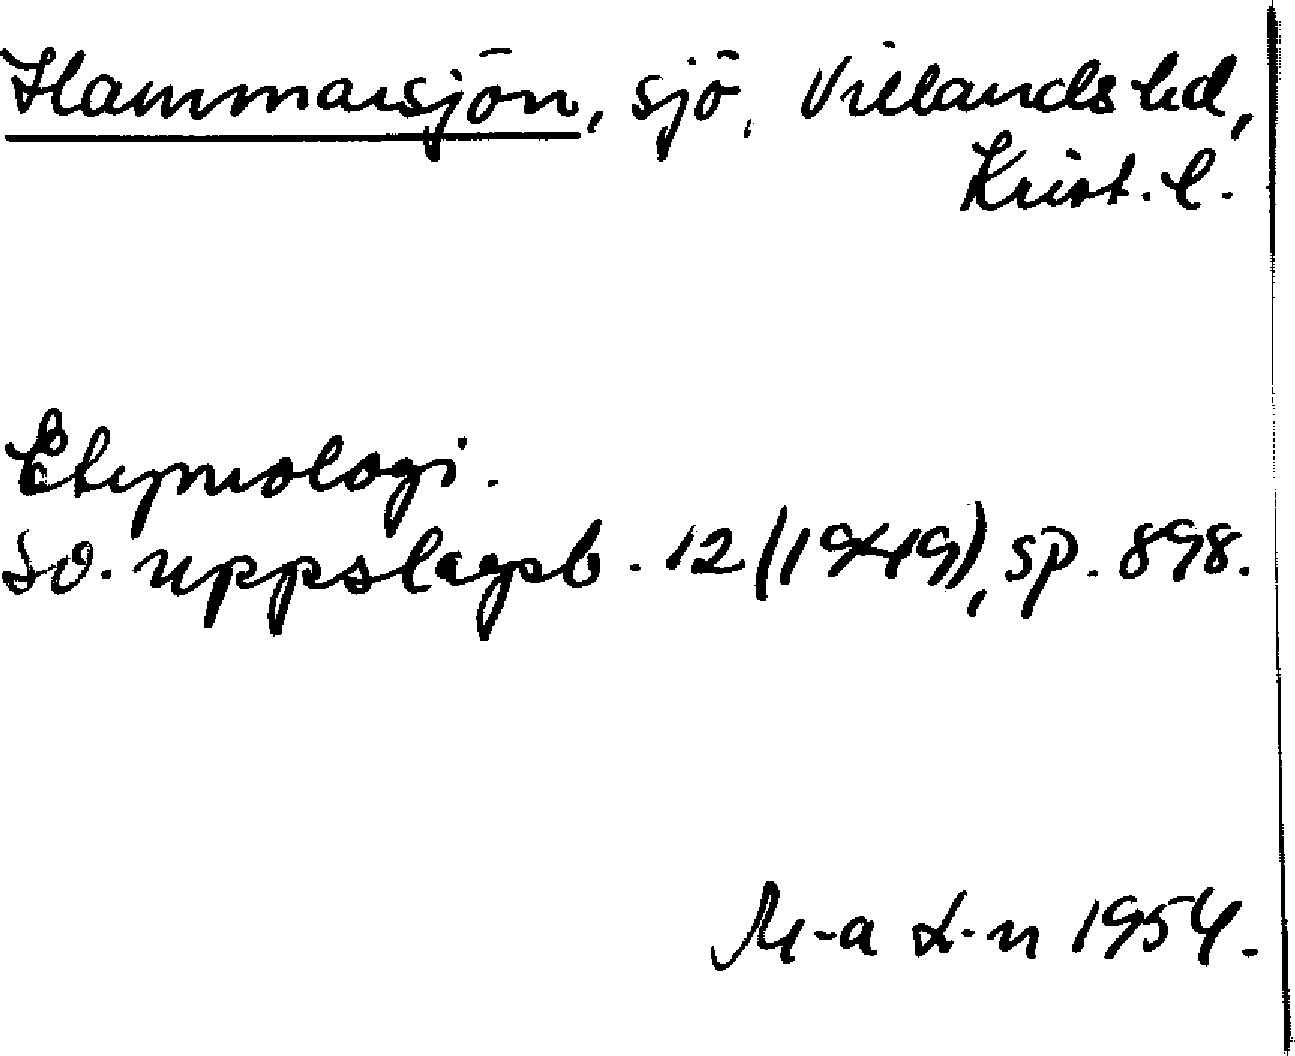 Hammarsjön, sjö, Villands hd,
Krist. l.
Etymologi.
Sv. uppslagsb. 12 (1949), sp. 898.
M-a L-n 1954.